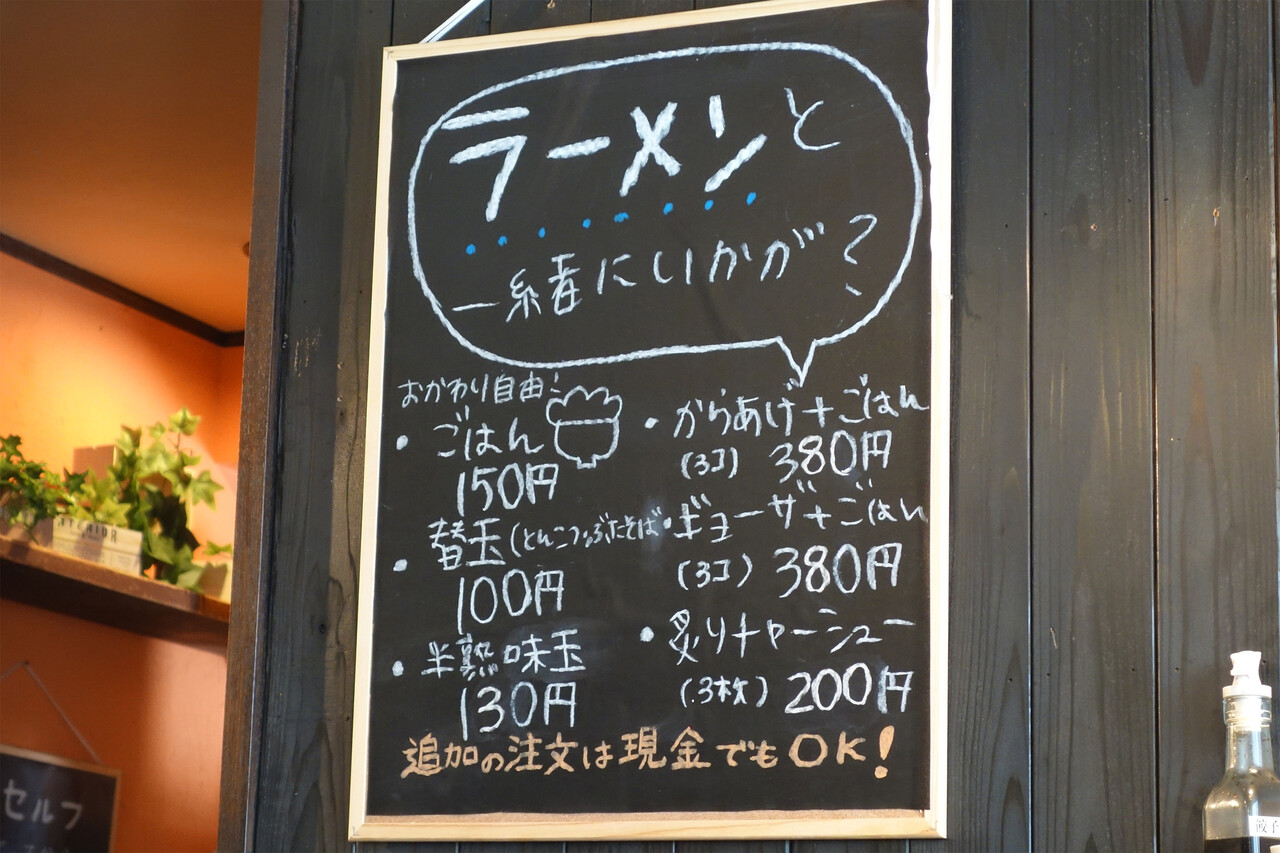 ラーメンと
一緒にいかが?
おかわり自由!
・ごはん
150円
・替玉(とんこつ、ぶたそば
100円
・半熟味玉
130円
・からあげ+ごはん
(3コ) 380円
・ギョーザ+ごはん
(3コ) 380円
・炙りチャーシュー
(3枚) 200円
追加の注文は現金でもOK!
セルフ
餃子